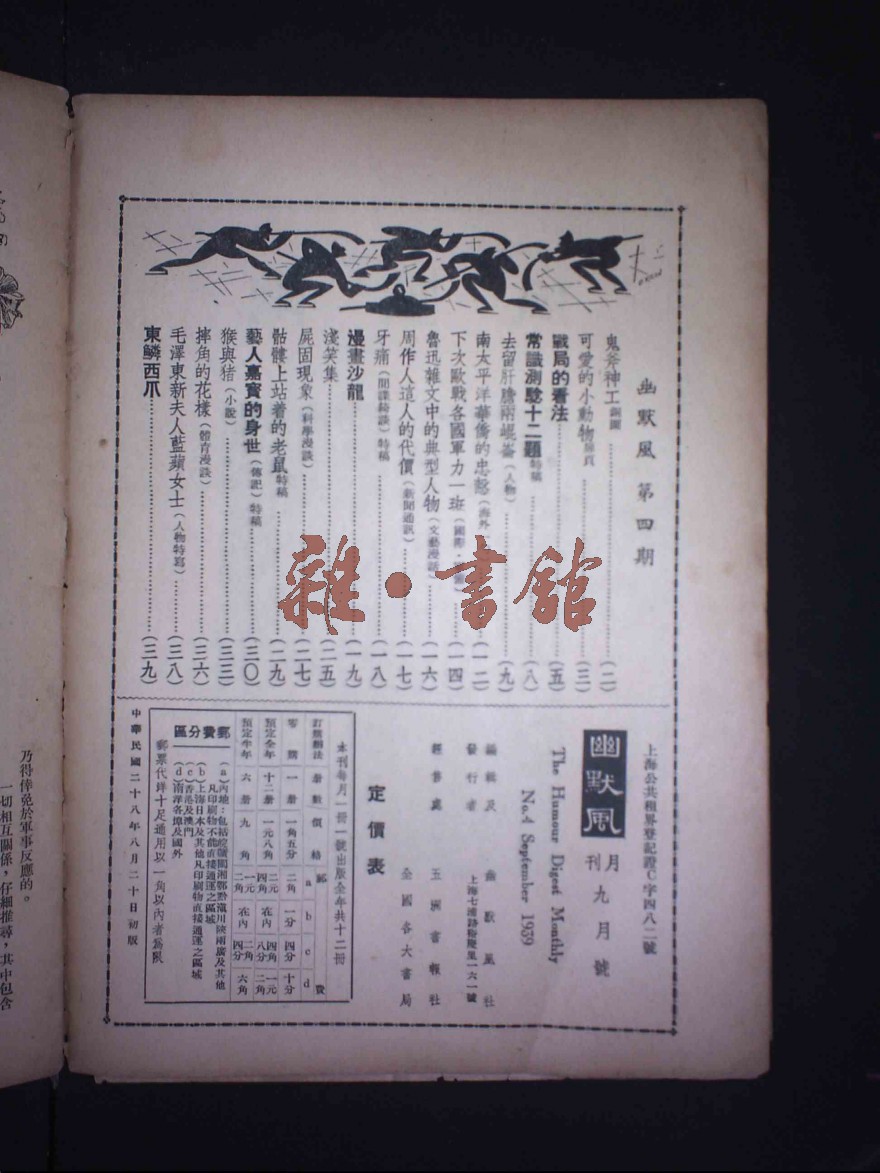 幽默風第四期
鬼斧神工 銅圖 (二)
可愛的小動物 (三)
戰局的看法 (五)
常識測驗十二題 特稿 (八)
去留肝膽兩崐崙 (人物) (九)
南太平洋華僑的忠懿 (海外 (一二)
下次歐戰各國軍力一班 (一四)
魯迅雜文中的典型人物 (文藝漫談) (一六)
周作人這人的代價 (新聞通訊) (一七)
牙痛 (間諜綺談) 特稿 (一八)
漫畫沙龍 (一九)
淺笑集 (二五)
屍固現象 (科學漫談) (二七)
骷髏上站着的老鼠 特稿 (二九)
藝人嘉賓的身世 (傳記) 特稿 (三〇)
猴與猪 (小說) (三三)
摔角的花樣 (體育漫談) (三六)
毛澤東新夫人藍蘋女士 (人物特寫) (三八)
東鱗西爪 (三九)
雜·書館
上海公共租界登記證C字四八二號
幽默風
月刊 九月號
The Humour Digest Monthly
No.4 September 1939
編輯及發行者 幽默風社
上海七浦路 慶里一六一號
經售處 五洲書報社
全國各大書局
定價表
本刊每月一冊一號出版全年共十二冊
訂購辦法 册數 價格 郵費 a b c d
零購 一册 一角五分 二角 一分 四分 十分
預定全年 十二册 一元八角 二元四角 在內 四角八分 一元二角
預定半年 六册 九角 一元二角 在內 二角四分 六角
郵費分區
(a)內地:包括皖贛閩湘鄂黔滇川陝兩廣及其他
凡印刷物不能直接通運之區域
(b)上海日本及其他凡印刷物直接通運之區域
(c)香港及澳門
(d)南洋各埠及國外
郵票代洋十足通用以一角以內者爲限
中華民國二十八年八月二十日初版
乃得倖免於軍事反應的。
一切相互關係,仔細推尋,其中包含